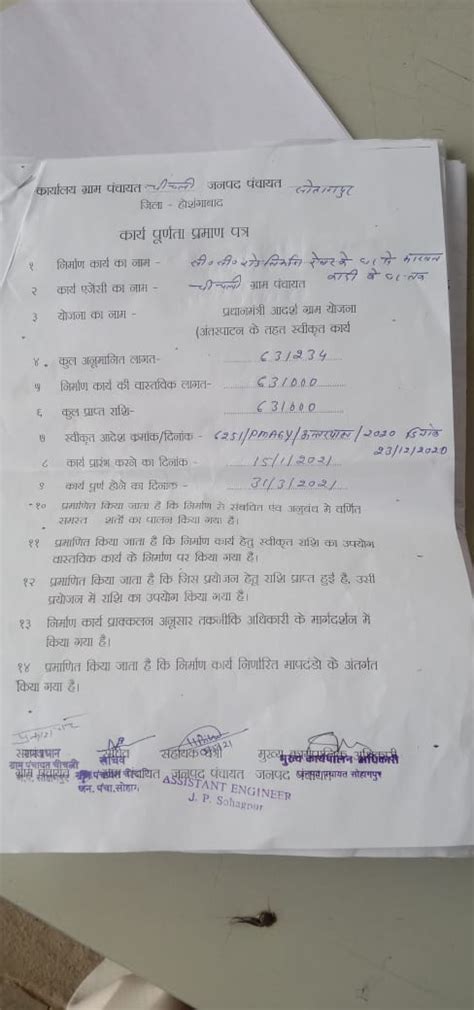 कार्यालय ग्राम पंचायत चीचली जनपद पंचायत सोहागपुर
जिला - होशंगाबाद
कार्य पूर्णता प्रमाण पत्र
१ निर्माण कार्य का नाम - सी० सी० रोड निर्माण के घर से के घर तक
२ कार्य एजेंसी का नाम - चीचली ग्राम पंचायत
३ योजना का नाम - प्रधानमंत्री आदर्श ग्राम योजना
(अंतरपाटन के तहत स्वीकृत कार्य
४. कुल अनुमानित लागत- 631234
५ निर्माण कार्य की वास्तविक लागत- 631000
६ कुल प्राप्त राशि- 631000
७ स्वीकृत आदेश क्रमांक/दिनांक - 6251/PMAGY/ /2020 दिनांक 23/12/2020
८ कार्य प्रारंभ करने का दिनांक - 15/1/2021
९ कार्य पूर्ण होने का दिनांक - 31/3/2021
१० प्रमाणित किया जाता है कि निर्माण से संबधित एंव अनुबंध मे वर्णित
समस्त शर्तो का पालन किया गया है।
११ प्रमाणित किया जाता है कि निर्माण कार्य हेतु स्वीकृत राशि का उपयोग
वास्तविक कार्य के निर्माण पर किया गया है।
१२ प्रमाणित किया जाता है कि जिस प्रयोजन हेतु राशि प्राप्त हुई है, उसी
प्रयोजन में राशि का उपयोग किया गया है।
१३ निर्माण कार्य प्राक्कलन अनुसार तकनीकि अधिकारी के मार्गदर्शन में
किया गया है।
१४ प्रमाणित किया जाता है कि निर्माण कार्य निर्णारित मापदंडो के अंतर्गत
किया गया है।
सचिव सहायक यंत्री मुख्य कार्यपालिक अधिकारी
ग्राम पंचायत चीचली मुख्य कार्यपालन अधिकारी
ग्राम पंचायत जनपद पंचायत जनपद पंचायत
ज.प. सोहागपुर जन. पंचा. सोहाग. जनपद पंचायत सोहागपुर
ASSISTANT ENGINEER
J. P. Sohagpur